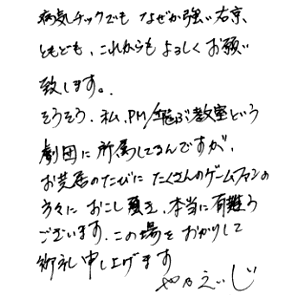 病気チックでもなぜか強い右京、
ともども、これからもよろしくお願い
致します。
そうそう、私、PM/飛ぶ教室という
劇団に所属してるんですが、
お芝居のたびにたくさんのゲームファンの
方々におこし頂き、本当に有難う
ございます。この場をおかりして
御礼申し上げます
やカえいじ